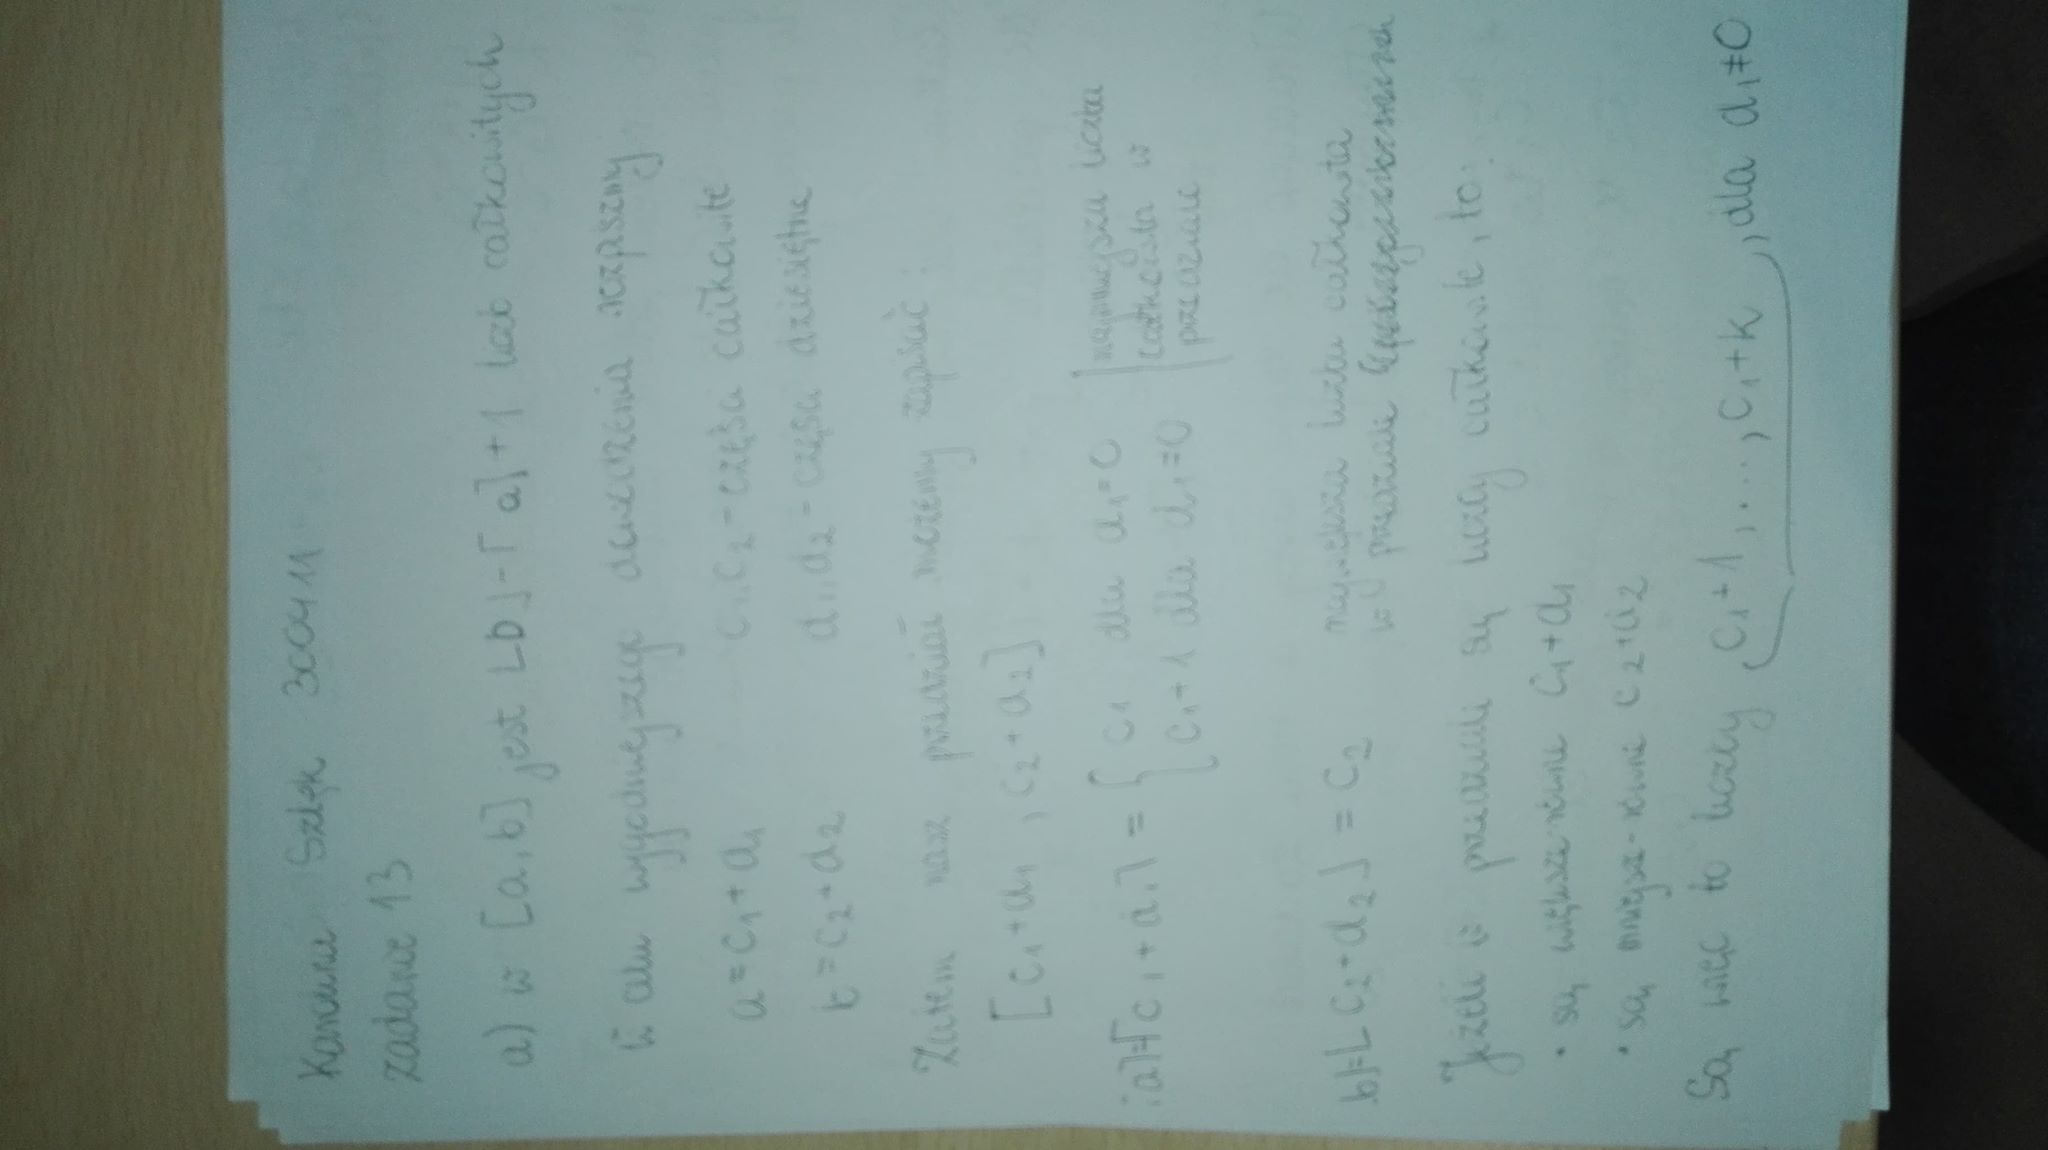 Szlęk 300411
zadanie 13
a) w [a,b] jest ⌊b⌋-⌈a⌉+1 liczb całkowitych
W celu wygodniejszego dowodzenia rozpiszmy
a=c₁+d₁ c₁,c₂-części całkowite
b=c₂+d₂ d₁,d₂-części dziesiętne
Zatem nasz przedział możemy zapisać:
[c₁+d₁, c₂+d₂]
⌈a⌉=⌈c₁+d₁⌉ = { c₁ dla d₁=0 | najmniejsza liczba
całkowita w
c₁+1 dla d₁≠0 | przedziale
⌊b⌋=⌊c₂+d₂⌋ = c₂ największa liczba całkowita
w przedziale
Jeżeli w przedziale są liczby całkowite, to:
• są większe-równe c₁+d₁
• są mniejsze-równe c₂+d₂
Są więc to liczby c₁+1,...,c₁+k, dla d₁≠0